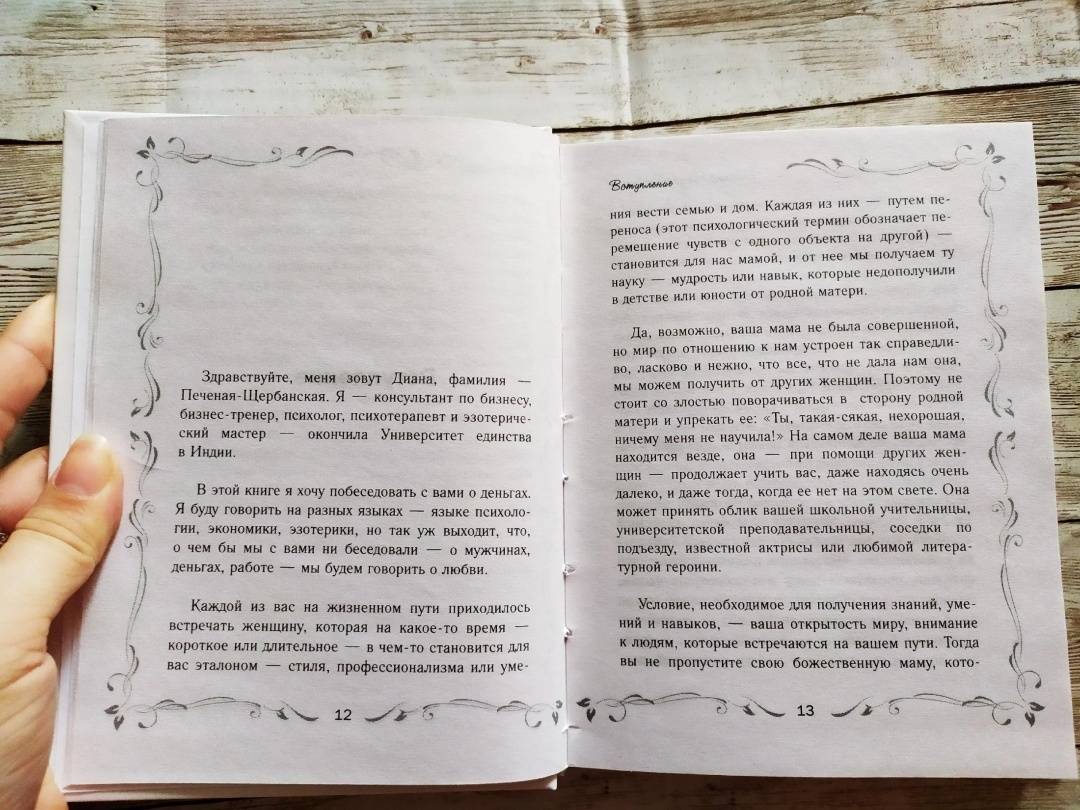 Здравствуйте, меня зовут Диана, фамилия —
Печеная-Щербанская. Я — консультант по бизнесу,
бизнес-тренер, психолог, психотерапевт и эзотери-
ческий мастер — окончила Университет единства
в Индии.
В этой книге я хочу побеседовать с вами о деньгах.
Я буду говорить на разных языках — языке психоло-
гии, экономики, эзотерики, но так уж выходит, что,
о чем бы мы с вами ни беседовали — о мужчинах,
деньгах, работе — мы будем говорить о любви.
Каждой из вас на жизненном пути приходилось
встречать женщину, которая на какое-то время —
короткое или длительное — в чем-то становится для
вас эталоном — стиля, профессионализма или уме-
12
Вступление
ния вести семью и дом. Каждая из них — путем пе-
реноса (этот психологический термин обозначает пе-
ремещение чувств с одного объекта на другой) —
становится для нас мамой, и от нее мы получаем ту
науку — мудрость или навык, которые недополучили
в детстве или юности от родной матери.
Да, возможно, ваша мама не была совершенной,
но мир по отношению к нам устроен так справедли-
во, ласково и нежно, что все, что не дала нам она,
мы можем получить от других женщин. Поэтому не
стоит со злостью поворачиваться в сторону родной
матери и упрекать ее: «Ты, такая-сякая, нехорошая,
ничему меня не научила!» На самом деле ваша мама
находится везде, она — при помощи других жен-
щин — продолжает учить вас, даже находясь очень
далеко, и даже тогда, когда ее нет на этом свете. Она
может принять облик вашей школьной учительницы,
университетской преподавательницы, соседки по
подъезду, известной актрисы или любимой литера-
турной героини.
Условие, необходимое для получения знаний, уме-
ний и навыков, — ваша открытость миру, внимание
к людям, которые встречаются на вашем пути. Тогда
вы не пропустите свою божественную маму, кото-
13